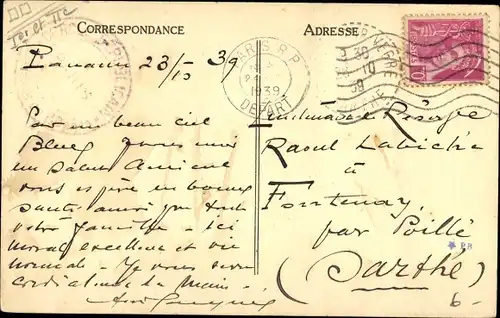 1er et IIe
CORRESPONDANCE
ADRESSE
Panam 23/10 39
PARS R.P.
1939
DEPART
30
10
39
Par un beau ciel
Bleu, vous
un salut Amical
vous espère en bonne
santé ainsi que toute
votre famille - ici
moral excellent et vie
normale - Je vous serre
cordialement la Main.
Raoul Labiche
à
Fontenay
par Poillé
(Sarthe)
PR
6-